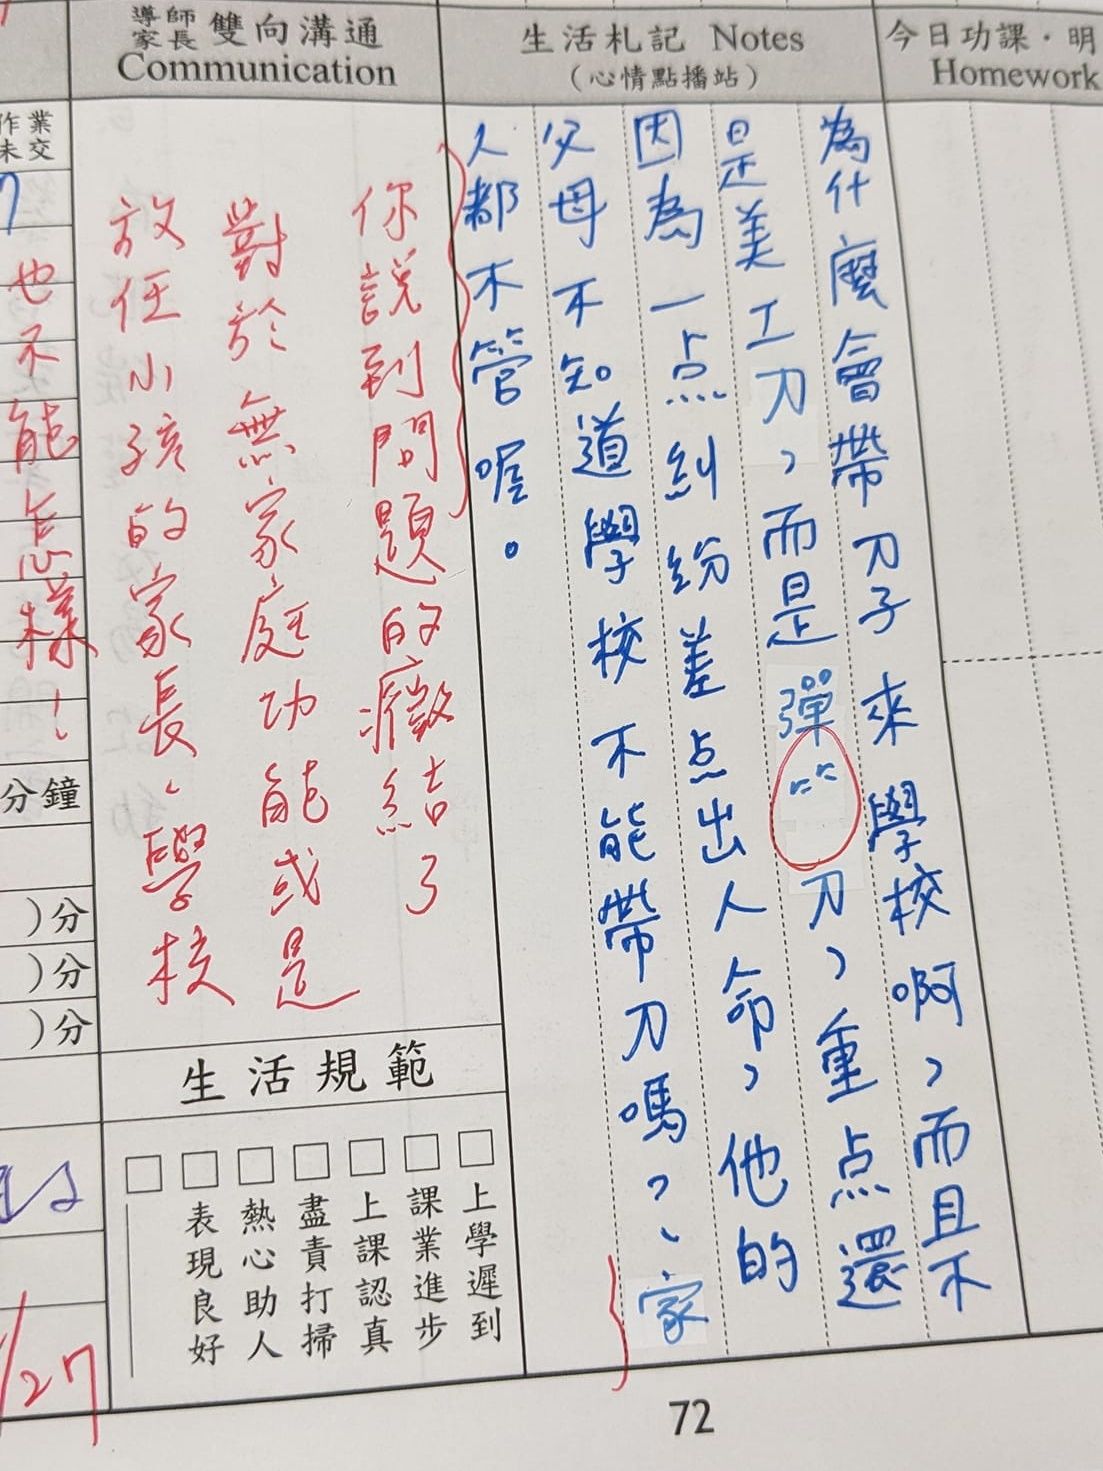 導師
家長 雙向溝通
Communication
生活札記 Notes
（心情點播站）
今日功課・明
Homework
為什麼會帶刀子來學校啊，而且不
是美工刀，而是彈⺮刀，重点還
因為一点糾紛差点出人命，他的
父母不知道學校不能帶刀嗎？、家
人都不管喔。
你說到問題的癥結了
對於無家庭功能或是
放任小孩的家長、學校
也不能怎樣！
作業
未交
分鐘
)分
)分
)分
生活規範
□上學遲到
□課業進步
□上課認真
□盡責打掃
□熱心助人
□表現良好
□
/27
72